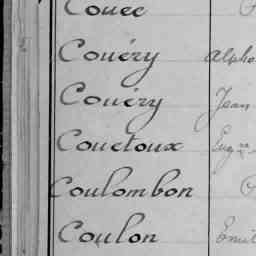 Couec
Couéry Alpho
Couéry Jean
Couetoux Eug
Coulombon
Coulon Emil